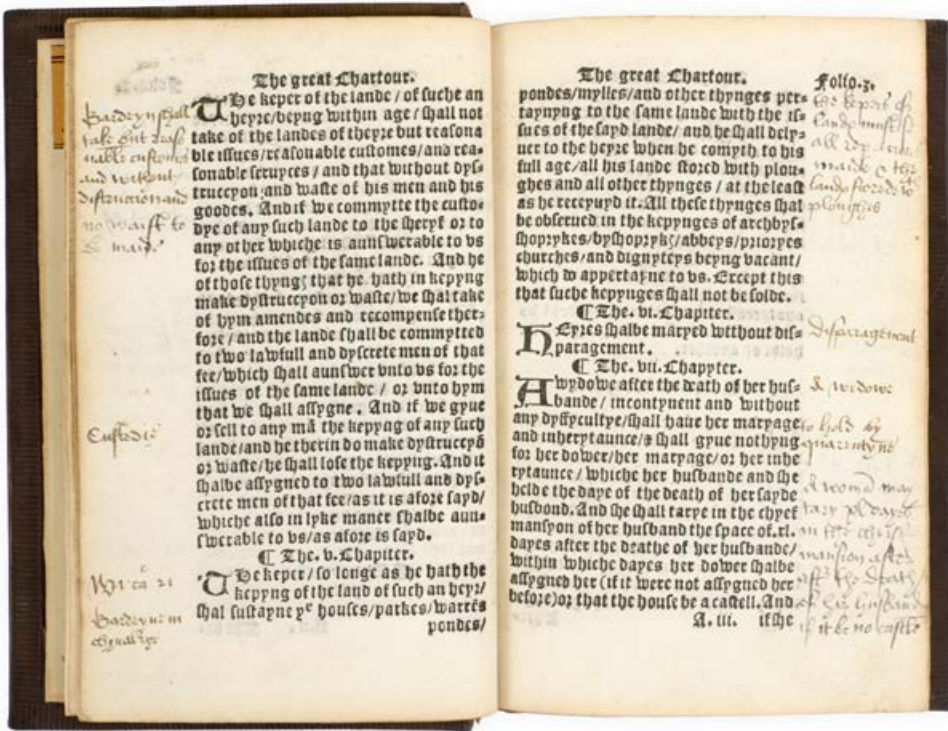 The great Chartour.
THe keper of the lande / of suche an
heyre/beyng within age / shall not
take of the landes of theyre but reasona
ble issues/reasonable customes/and rea-
sonable seruyces / and that without dys-
truccyon and waste of his men and his
goodes. And if we commytte the custo-
dye of any such lande to the sheryf or to
any other whiche is aunswerable to vs
for the issues of the same lande. And he
of those thyngꝭ that he hath in kepyng
make dystruccyon or waste/we shal take
of hym amendes and recompense ther-
fore / and the lande shall be commytted
to two lawfull and dyscrete men of that
fee/which shall aunswer vnto vs for the
issues of the same lande / or vnto hym
that we shall assygne . And if we gyue
or sell to any mā the kepyng of any such
lande/and he therin do make dystruccyō
or waste/he shall lose the kepyng. And it
shalbe assygned to two lawfull and dys-
crete men of that fee/as it is afore sayd/
whiche also in lyke maner shalbe aun-
swerable to vs/as afore is sayd.
¶ The. v. Chapiter.
THe keper/so longe as he hath the
kepyng of the land of such an heyr/
shal sustayne yᵉ houses/parkes/warrēs
pondes/
Wardeyn shall
take but reaso
nable customes
and without
distruction and
no waist to
be maid.
Custodie
Wardeyne in
The great Chartour.
Folio.3.
pondes/mylles/and other thynges per-
taynyng to the same lande with the is-
sues of the sayd lande/ and he shall dely-
uer to the heyre when he comyth to his
full age/all his lande stored with plou-
ghes and all other thynges / at the least
as he receyuyd it. All these thynges shal
be obserued in the keppynges of archbys-
shoprykes/byshoprykꝭ/abbeys/pryoryes
churches/and dignyteys beyng vacant/
which do appertayne to vs. Except this
that suche keppynges shall not be solde.
¶ The. vi. Chapiter.
HEyres shalbe maryed without dis-
paragement.
¶ The. vii. Chappter.
A wydowe after the death of her hus-
bande / incontynent and without
any dyffycultye/shall haue her maryage
and inherytaunce/⁊ shall gyue nothyng
for her dower/her maryage/or her inhe
rytaunce / whiche her husbande and she
helde the daye of the death of her sayde
husbond. And she shall tarye in the chyef
mansyon of her husband the space of .xl.
dayes after the deathe of her husbande/
within whiche dayes her dower shalbe
assygned her (if it were not assygned her
before)or that the house be a castell. And
A. iii. if she
the kepers of
lands must
all
lands stored wᵗ
ploughis
disparagement
A wedowe
to hold by
quarentyne
A womā may
tary xl dayes
in the chief
mansion after
the death
of her husband
if it be no castle